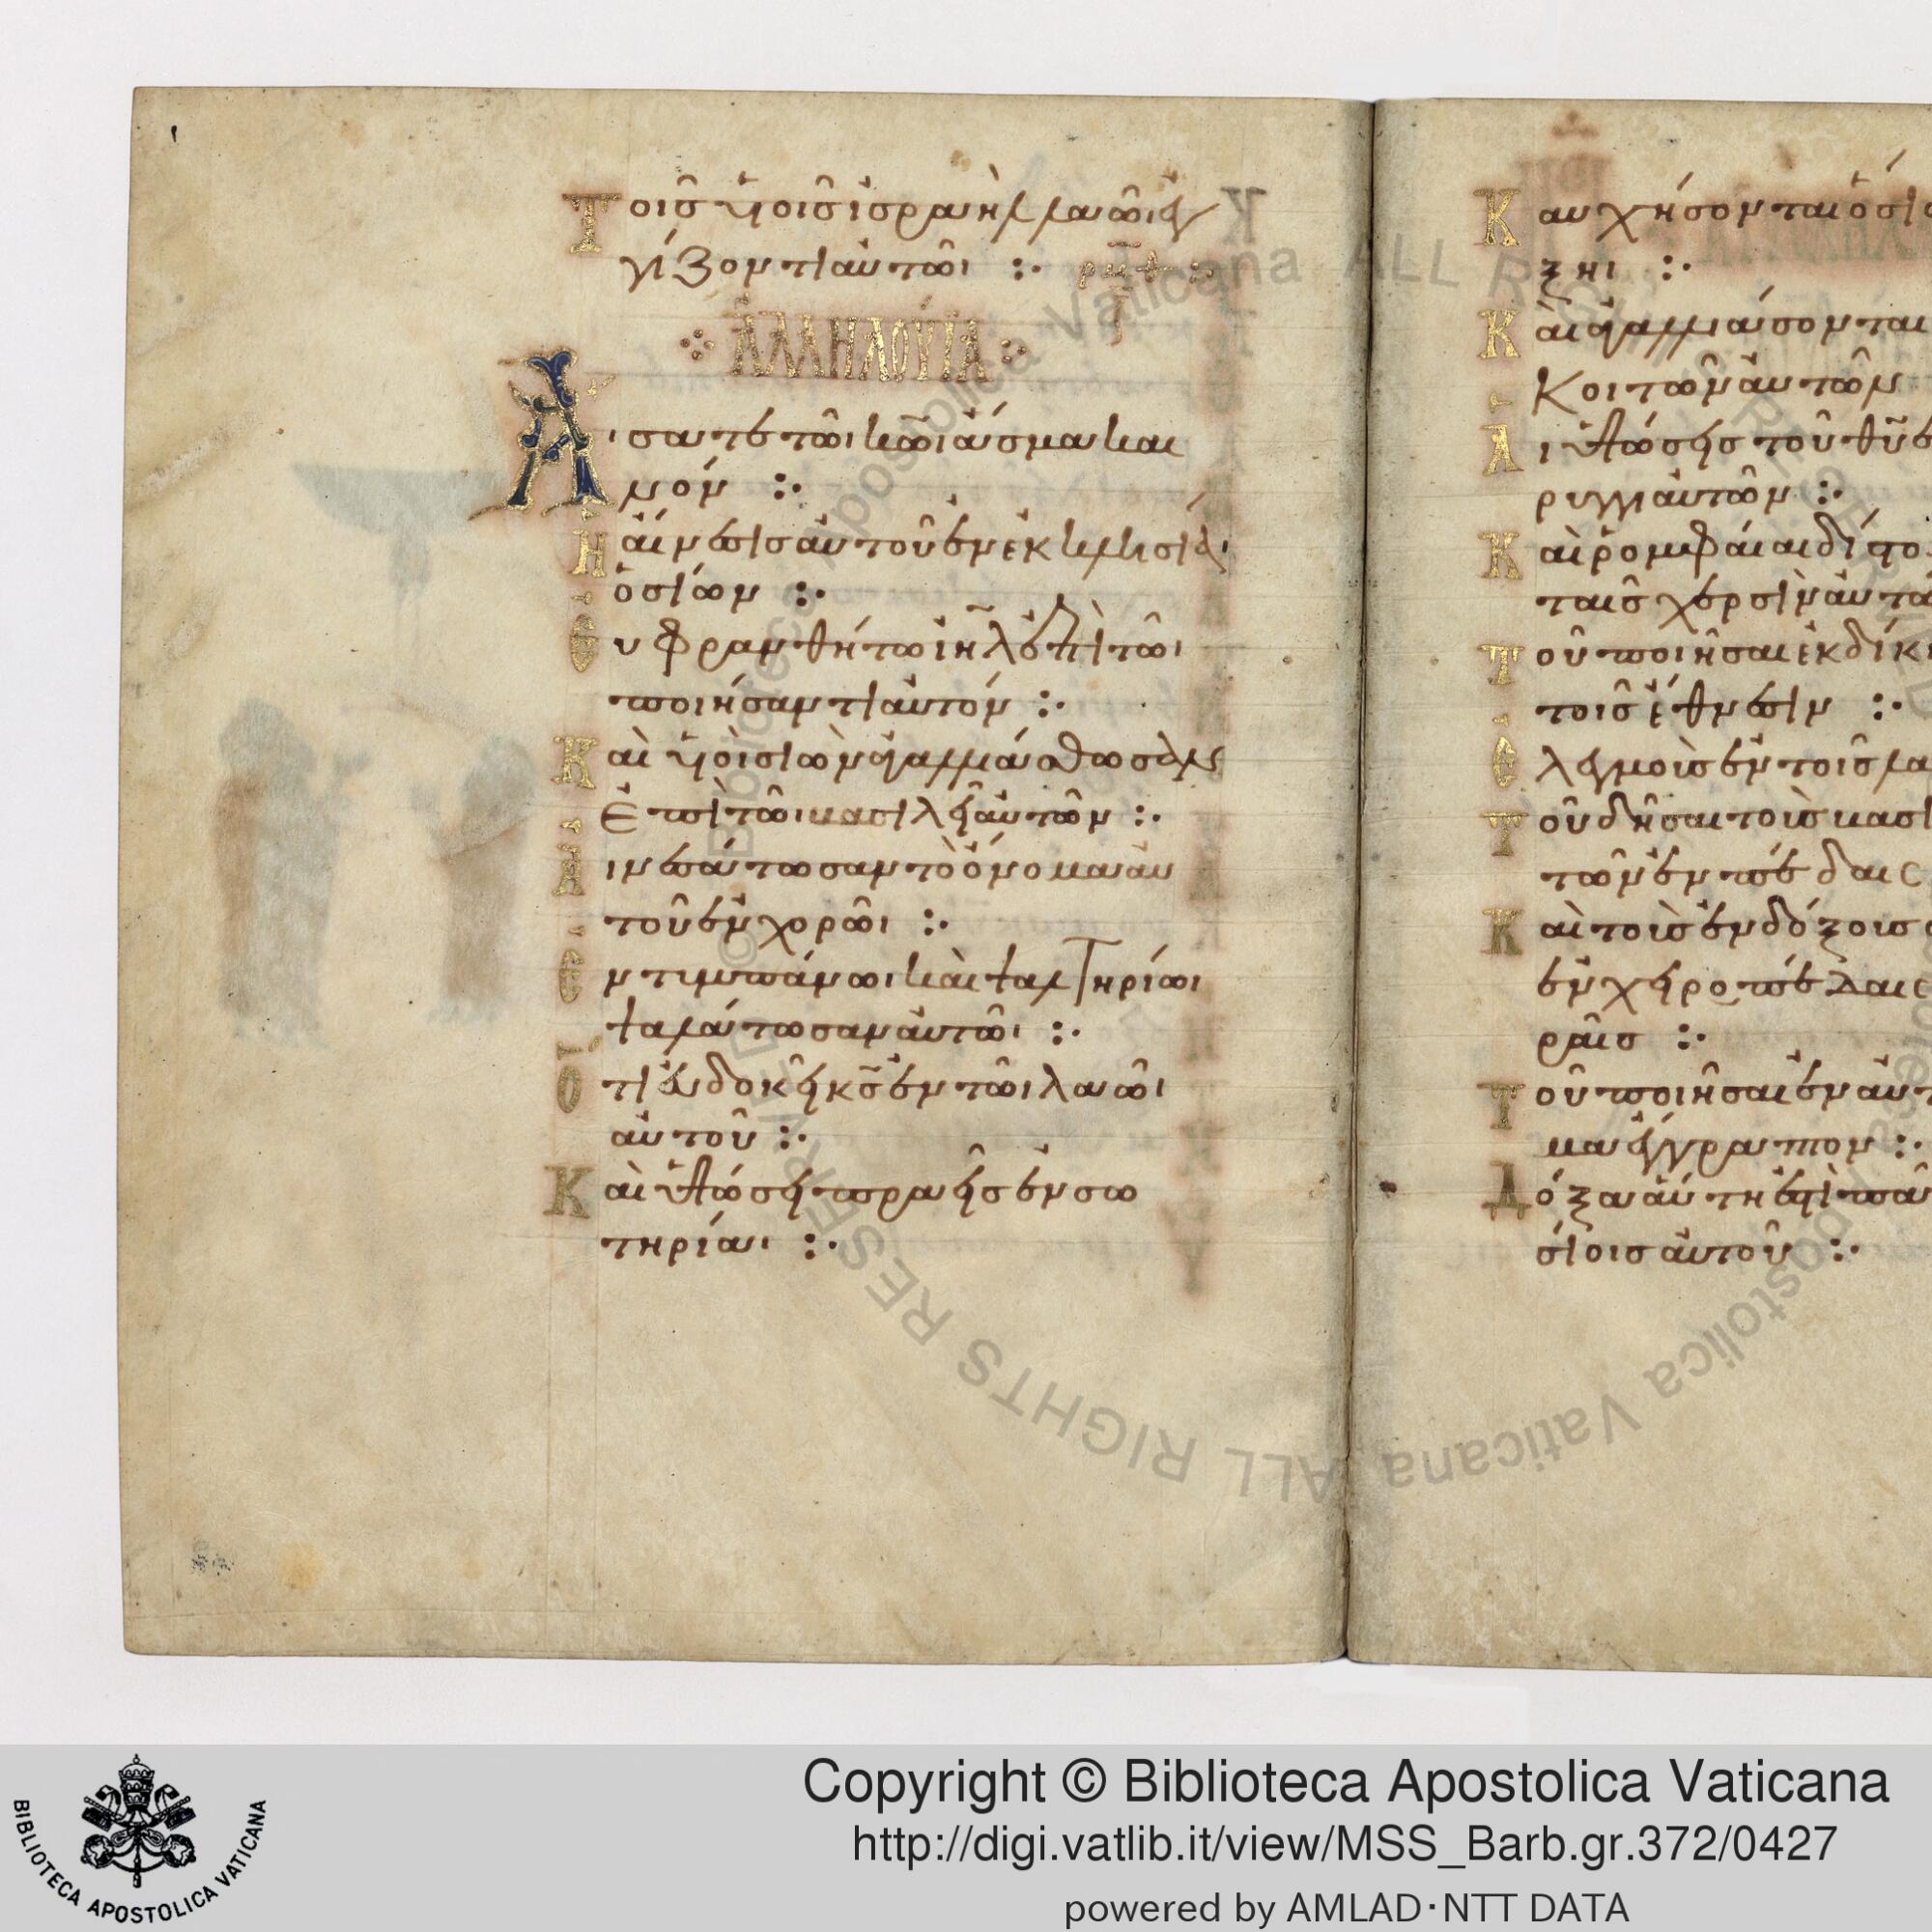 Τοῖς υἱοῖς ἰσραὴλ λαῶι ἐγ
γίζοντι αὐτῶι :· ρμθ :·
ἈΛΛΗΛΟΥΪΑ
Ἄισατε τῶι κῶι ἆσμα και
νόν :·
Ἡ αἴνεσις αὐτοῦ ἐν ἐκκλησίαι
ὁσίων :·
Εὐφρανθήτω ἰηλ ἐπὶ τῶι
ποιήσαντι αὐτόν :·
Καὶ υἱοὶ σιὼν ἀγαλλιάσθωσαν
ἐπὶ τῶι βασιλεῖ αὐτῶν :·
Αἰνεσάτωσαν τὸ ὄνομα αὐ
τοῦ ἐν χορῶι :·
Ἐν τυμπάνωι καὶ ψαλτηρίωι
ψαλάτωσαν αὐτῶι :·
Ὅτι εὐδοκεῖ κς ἐν τῶι λαῶι
αὐτοῦ :·
Καὶ ὑψώσει πραεῖς ἐν σω
τηρίαι :·
Καυχήσονται ὅσι
ξηι :·
Καὶ ἀγαλλιάσονται
κοιτῶν αὐτῶν
Αἱ ὑψώσεις τοῦ θυ ἐ
ρυγγι αὐτῶν :·
Καὶ ῥομφαίαι δίστο
ταῖς χερσὶν αὐτῶ
Τοῦ ποιῆσαι ἐκδίκη
τοῖς ἔθνεσιν :·
Ἐλεγμοὺς ἐν τοῖς λα
Τοῦ δῆσαι τοὺς βασι
τῶν ἐν πέδαις
Καὶ τοὺς ἐνδόξους
ἐν χειροπέδαις
ραῖς :·
Τοῦ ποιῆσαι ἐν αὐτ
μα ἔγγραπτον :·
Δόξα αὕτη ἐστὶ πᾶ
σίοις αὐτοῦ :·
Copyright © Biblioteca Apostolica Vaticana
http://digi.vatlib.it/view/MSS_Barb.gr.372/0427
powered by AMLAD·NTT DATA
BIBLIOTECA APOSTOLICA VATICANA